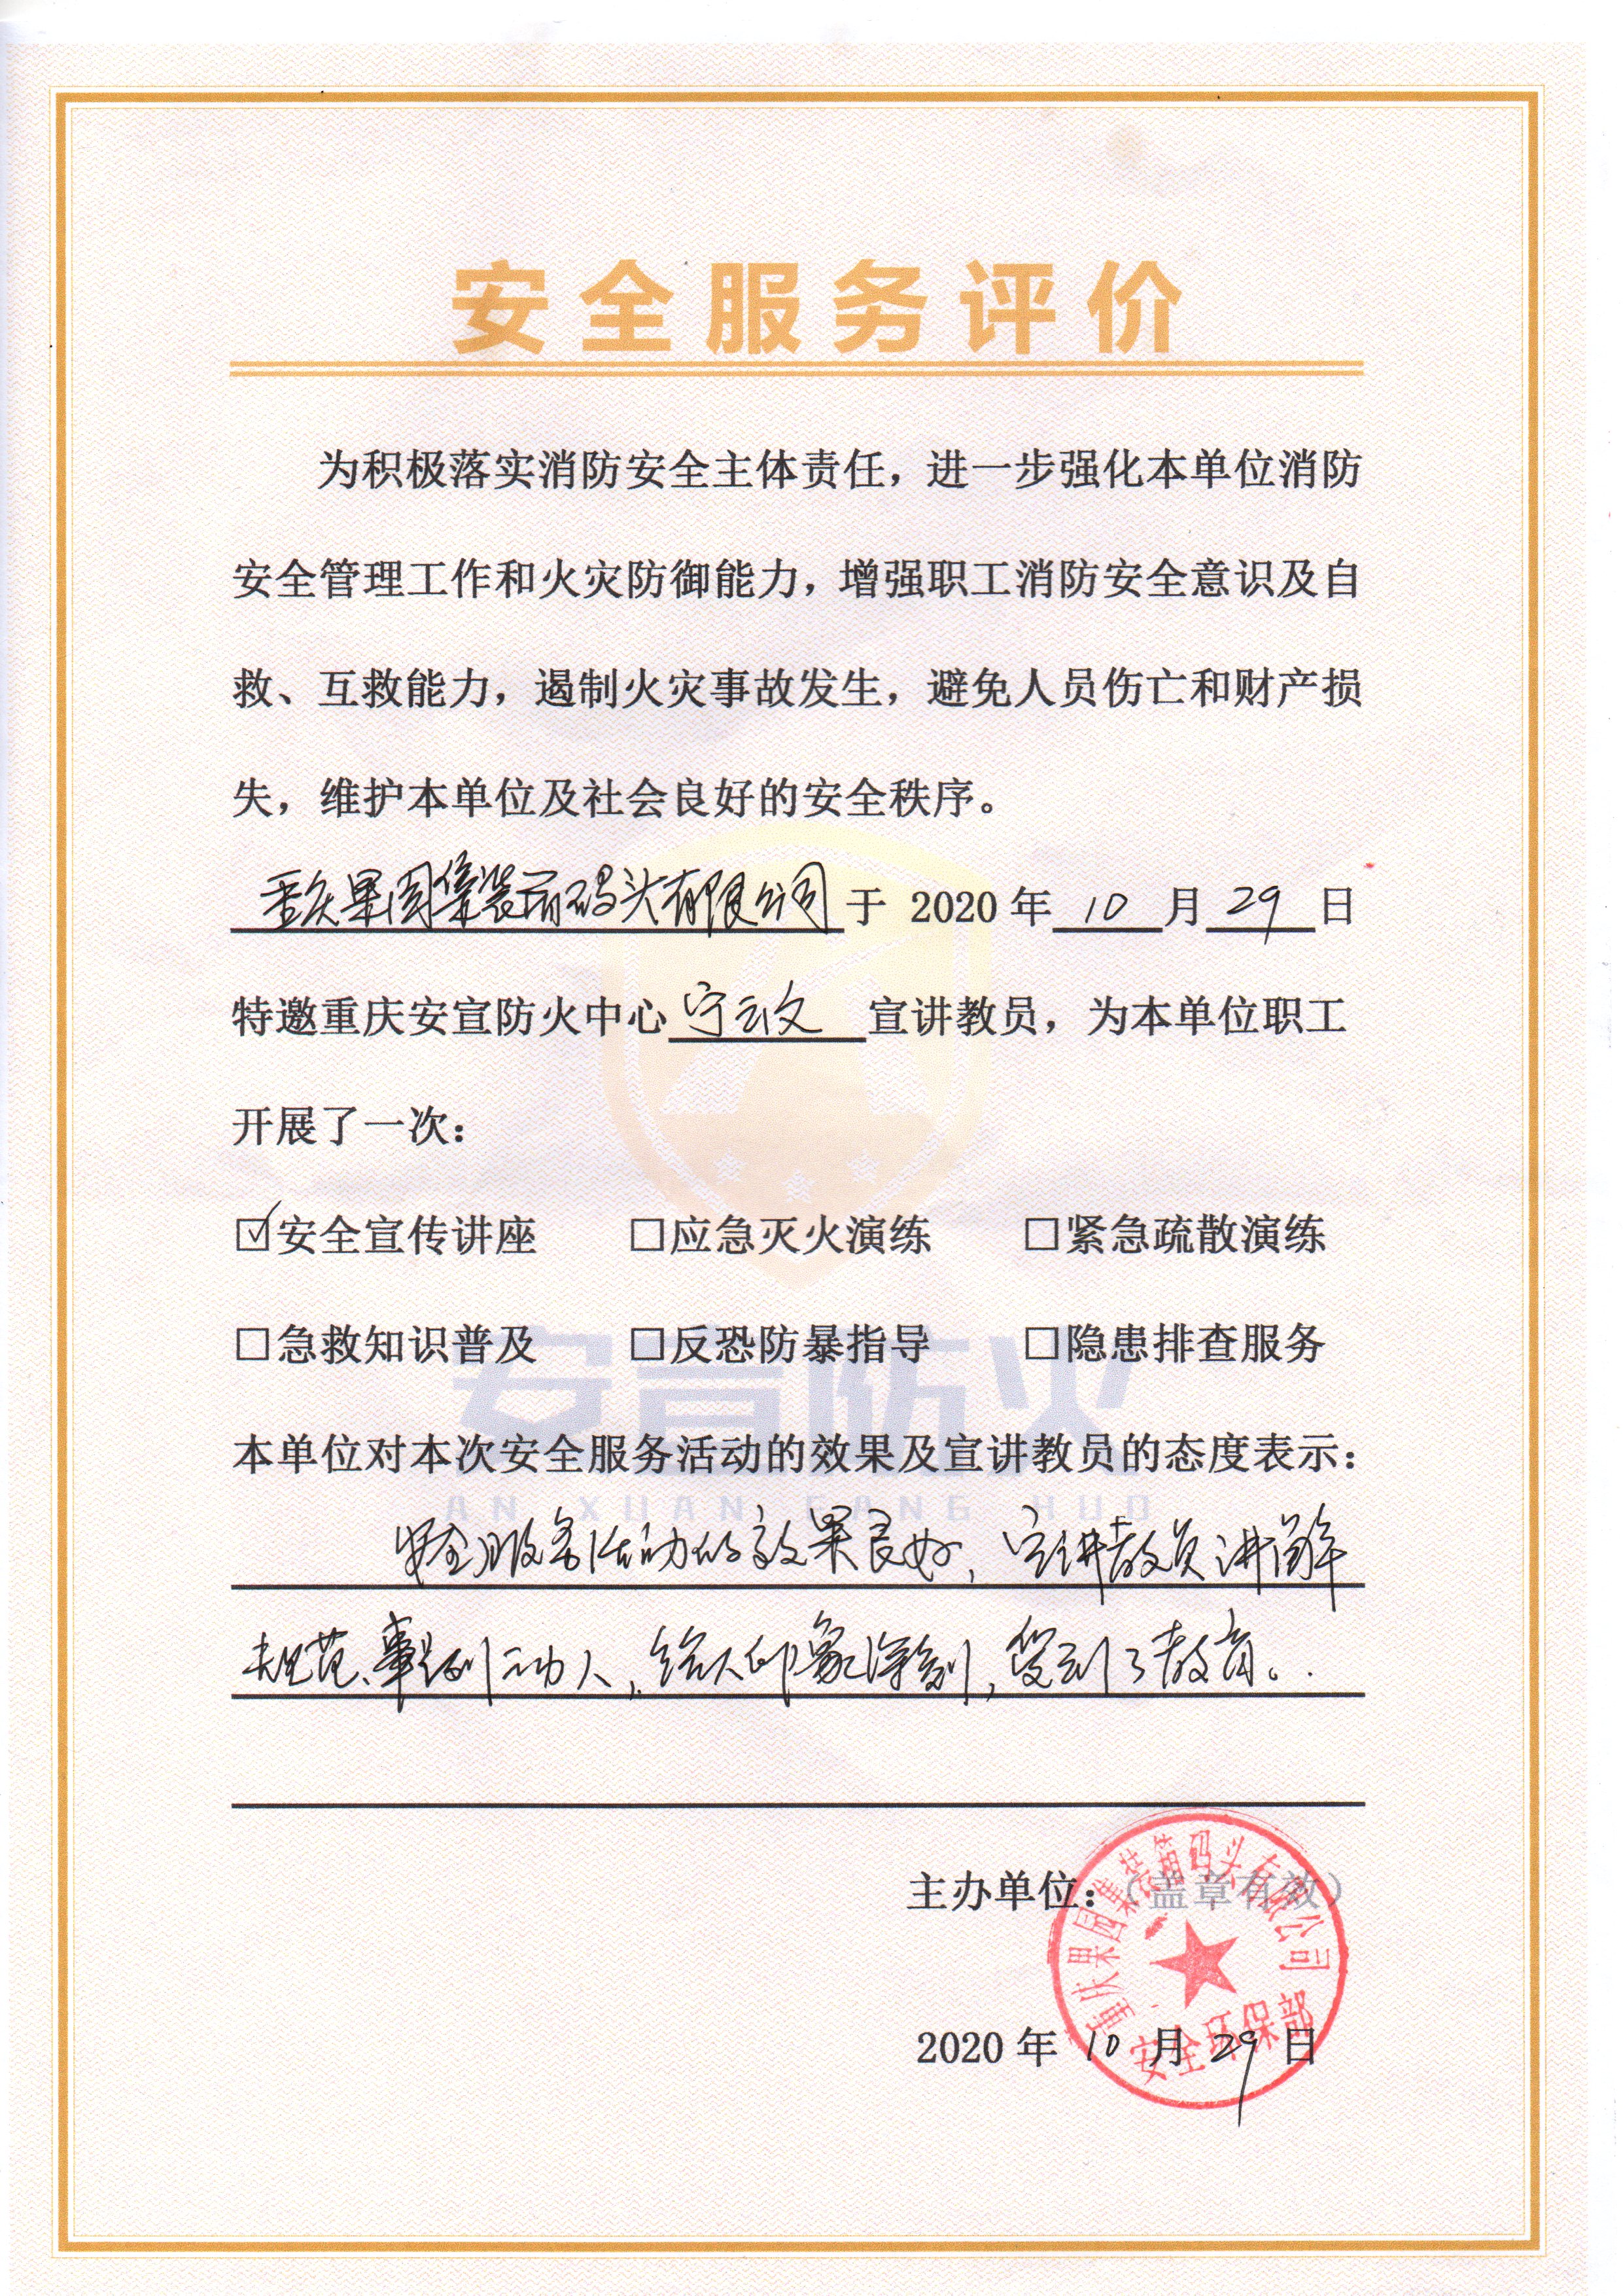 安全服务评价
为积极落实消防安全主体责任，进一步强化本单位消防
安全管理工作和火灾防御能力，增强职工消防安全意识及自
救、互救能力，遏制火灾事故发生，避免人员伤亡和财产损
失，维护本单位及社会良好的安全秩序。
重庆果园集装箱码头有限公司于 2020 年 10 月 29 日
特邀重庆安宣防火中心宁云文宣讲教员，为本单位职工
开展了一次：
☑安全宣传讲座 □应急灭火演练 □紧急疏散演练
□急救知识普及 □反恐防暴指导 □隐患排查服务
安宣防火
本单位对本次安全服务活动的效果及宣讲教员的态度表示：
AN XUAN FANG HUO
安全服务活动的效果良好，宣讲教员讲解
规范、事例动人，给人印象深刻，受到了教育。
主办单位：（盖章有效）
重庆果园集装箱码头有限公司
安全环保部
2020 年 10 月 29 日